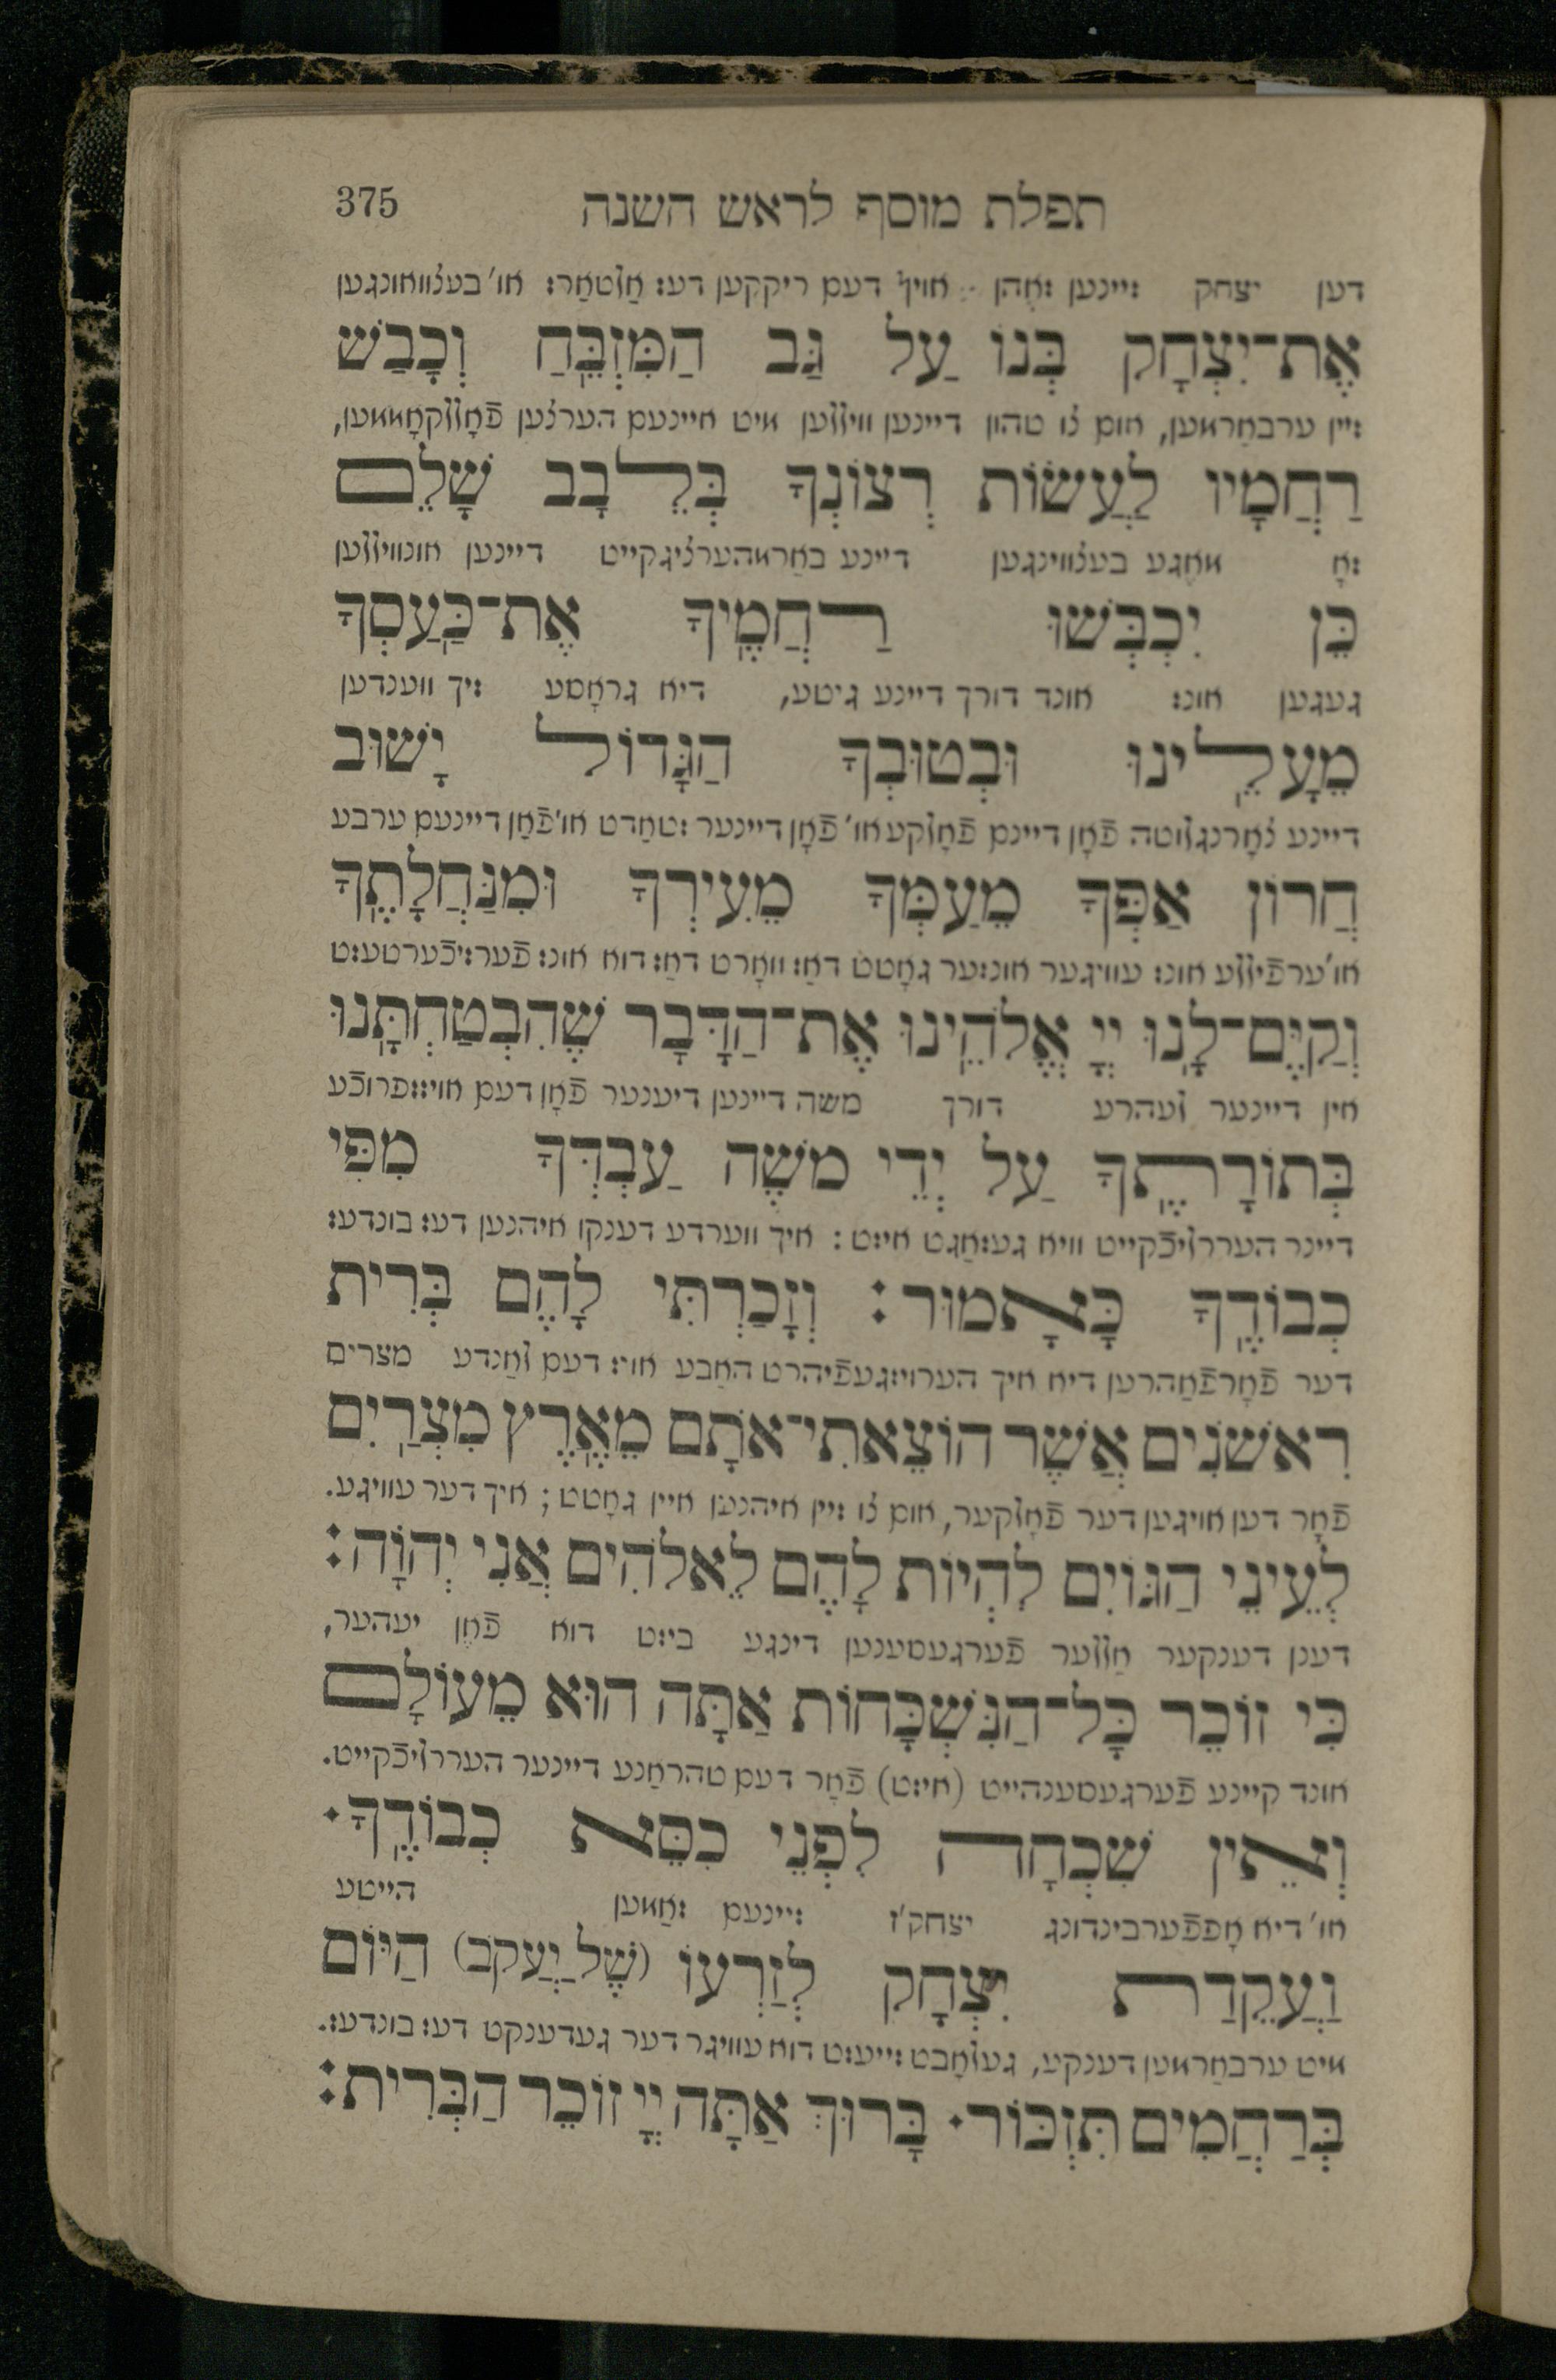 תפלת מוסף לראש השנה 375
דען יצחק זיינען זאָהן אויף דעם ריקקען דעס אַלטאַרס או' בעצוואונגען
אֶת־יִצְחָק בְּנוֹ עַל גַּב הַמִּזְבֵּֽחַ וְכָבַשׁ
זיין ערבאַרמען, אום צו טהון דיינען ווילּלען מיט איינעם הערצען פֿאָללקאָממען,
רַחֲמָיו לַעֲשׂוֹת רְצוֹנְךָ בְּלֵבָב שָׁלֵם
זאָ מאָגע בעצווינגען דיינע באַרמהערציגקייט דיינען אונווילּלען
כֵּן יִכְבְּשׁוּ רַחֲמֶֽיךָ אֶת־כַּֽעַסְךָ
געגען אונס אונד דורך דיינע גיטע, דיא גראָסע זיך ווענדען
מֵעָלֵֽינוּ וּבְטוּבְךָ הַגָּדוֹל יָשׁוּב
דיינע צאָרנגלוטה פֿאָן דיינם פֿאָלקע או' פֿאָן דיינער שטאַדט או' פֿאָן דיינעם ערבע
חֲרוֹן אַפְּךָ מֵעַמְּךָ מֵעִירְךָ וּמִנַּחֲלָתֶֽךָ
או' ערפֿיללע אונס עוויגער אונזער גאָטט דאַס וואָרט דאַס דוא אונס פֿערזיכֿערטעסט
וְקַיֶּם־לָֽנוּ יְיָ אֱלֹהֵֽינוּ אֶת־הַדָּבָר שֶׁהִבְטַחְתָּֽנוּ
אין דיינער לעהרע דורך משה דיינען דיענער פֿאָן דעם אויסשפרוכֿע
בְּתוֹרָתֶֽךָ עַל יְדֵי מֹשֶׁה עַבְדְּךָ מִפִּי
דיינר הערר‌ליכֿקייט וויא געזאַגט איזט : איך ווערדע דענקן איהנען דעס בונדעס
כְבוֹדֶֽךָ כָּאָמוּר: וְזָכַרְתִּי לָהֶם בְּרִית
דער פֿאָרפֿאַהרען דיא איך הערויסגעפֿיהרט האַבע אויס דעם לאַנדע מצרים
רִאשֹׁנִים אֲשֶׁר הוֹצֵאתִי־אֹתָם מֵאֶֽרֶץ מִצְרַֽיִם
פֿאָר דען אויגען דער פֿאָלקער, אום צו זיין איהנען איין גאָטט ; איך דער עוויגע.
לְעֵינֵי הַגּוֹיִם לִהְיוֹת לָהֶם לֵאלֹהִים אֲנִי יְהוָֹה:
דענן דענקער אַללער פֿערגעסענען דינגע ביזט דוא פֿאָן יעהער,
כִּי זוֹכֵר כָּל־הַנִּשְׁכָּחוֹת אַתָּה הוּא מֵעוֹלָם
אונד קיינע פֿערגעסענהייט (איזט) פֿאָר דעם טהראָנע דיינער הערר‌ליכֿקייט.
וְאֵין שִׁכְחָה לִפְנֵי כִסֵּא כְבוֹדֶֽךָ.
או' דיא אָפפֿערבינדונג יצחק'ז זיינעם זאַמען הייטע
וַעֲקֵדַת יִצְחָק לְזַרְעוֹ (שֶׁל יַעֲקֹב) הַיּוֹם
מיט ערבאַרמען דענקע, געלאָבט זייעסט דוא עוויגר דער געדענקט דעס בונדעס.
בְּרַחֲמִים תִּזְכּוֹר. בָּרוּךְ אַתָּה יְיָ זוֹכֵר הַבְּרִית: